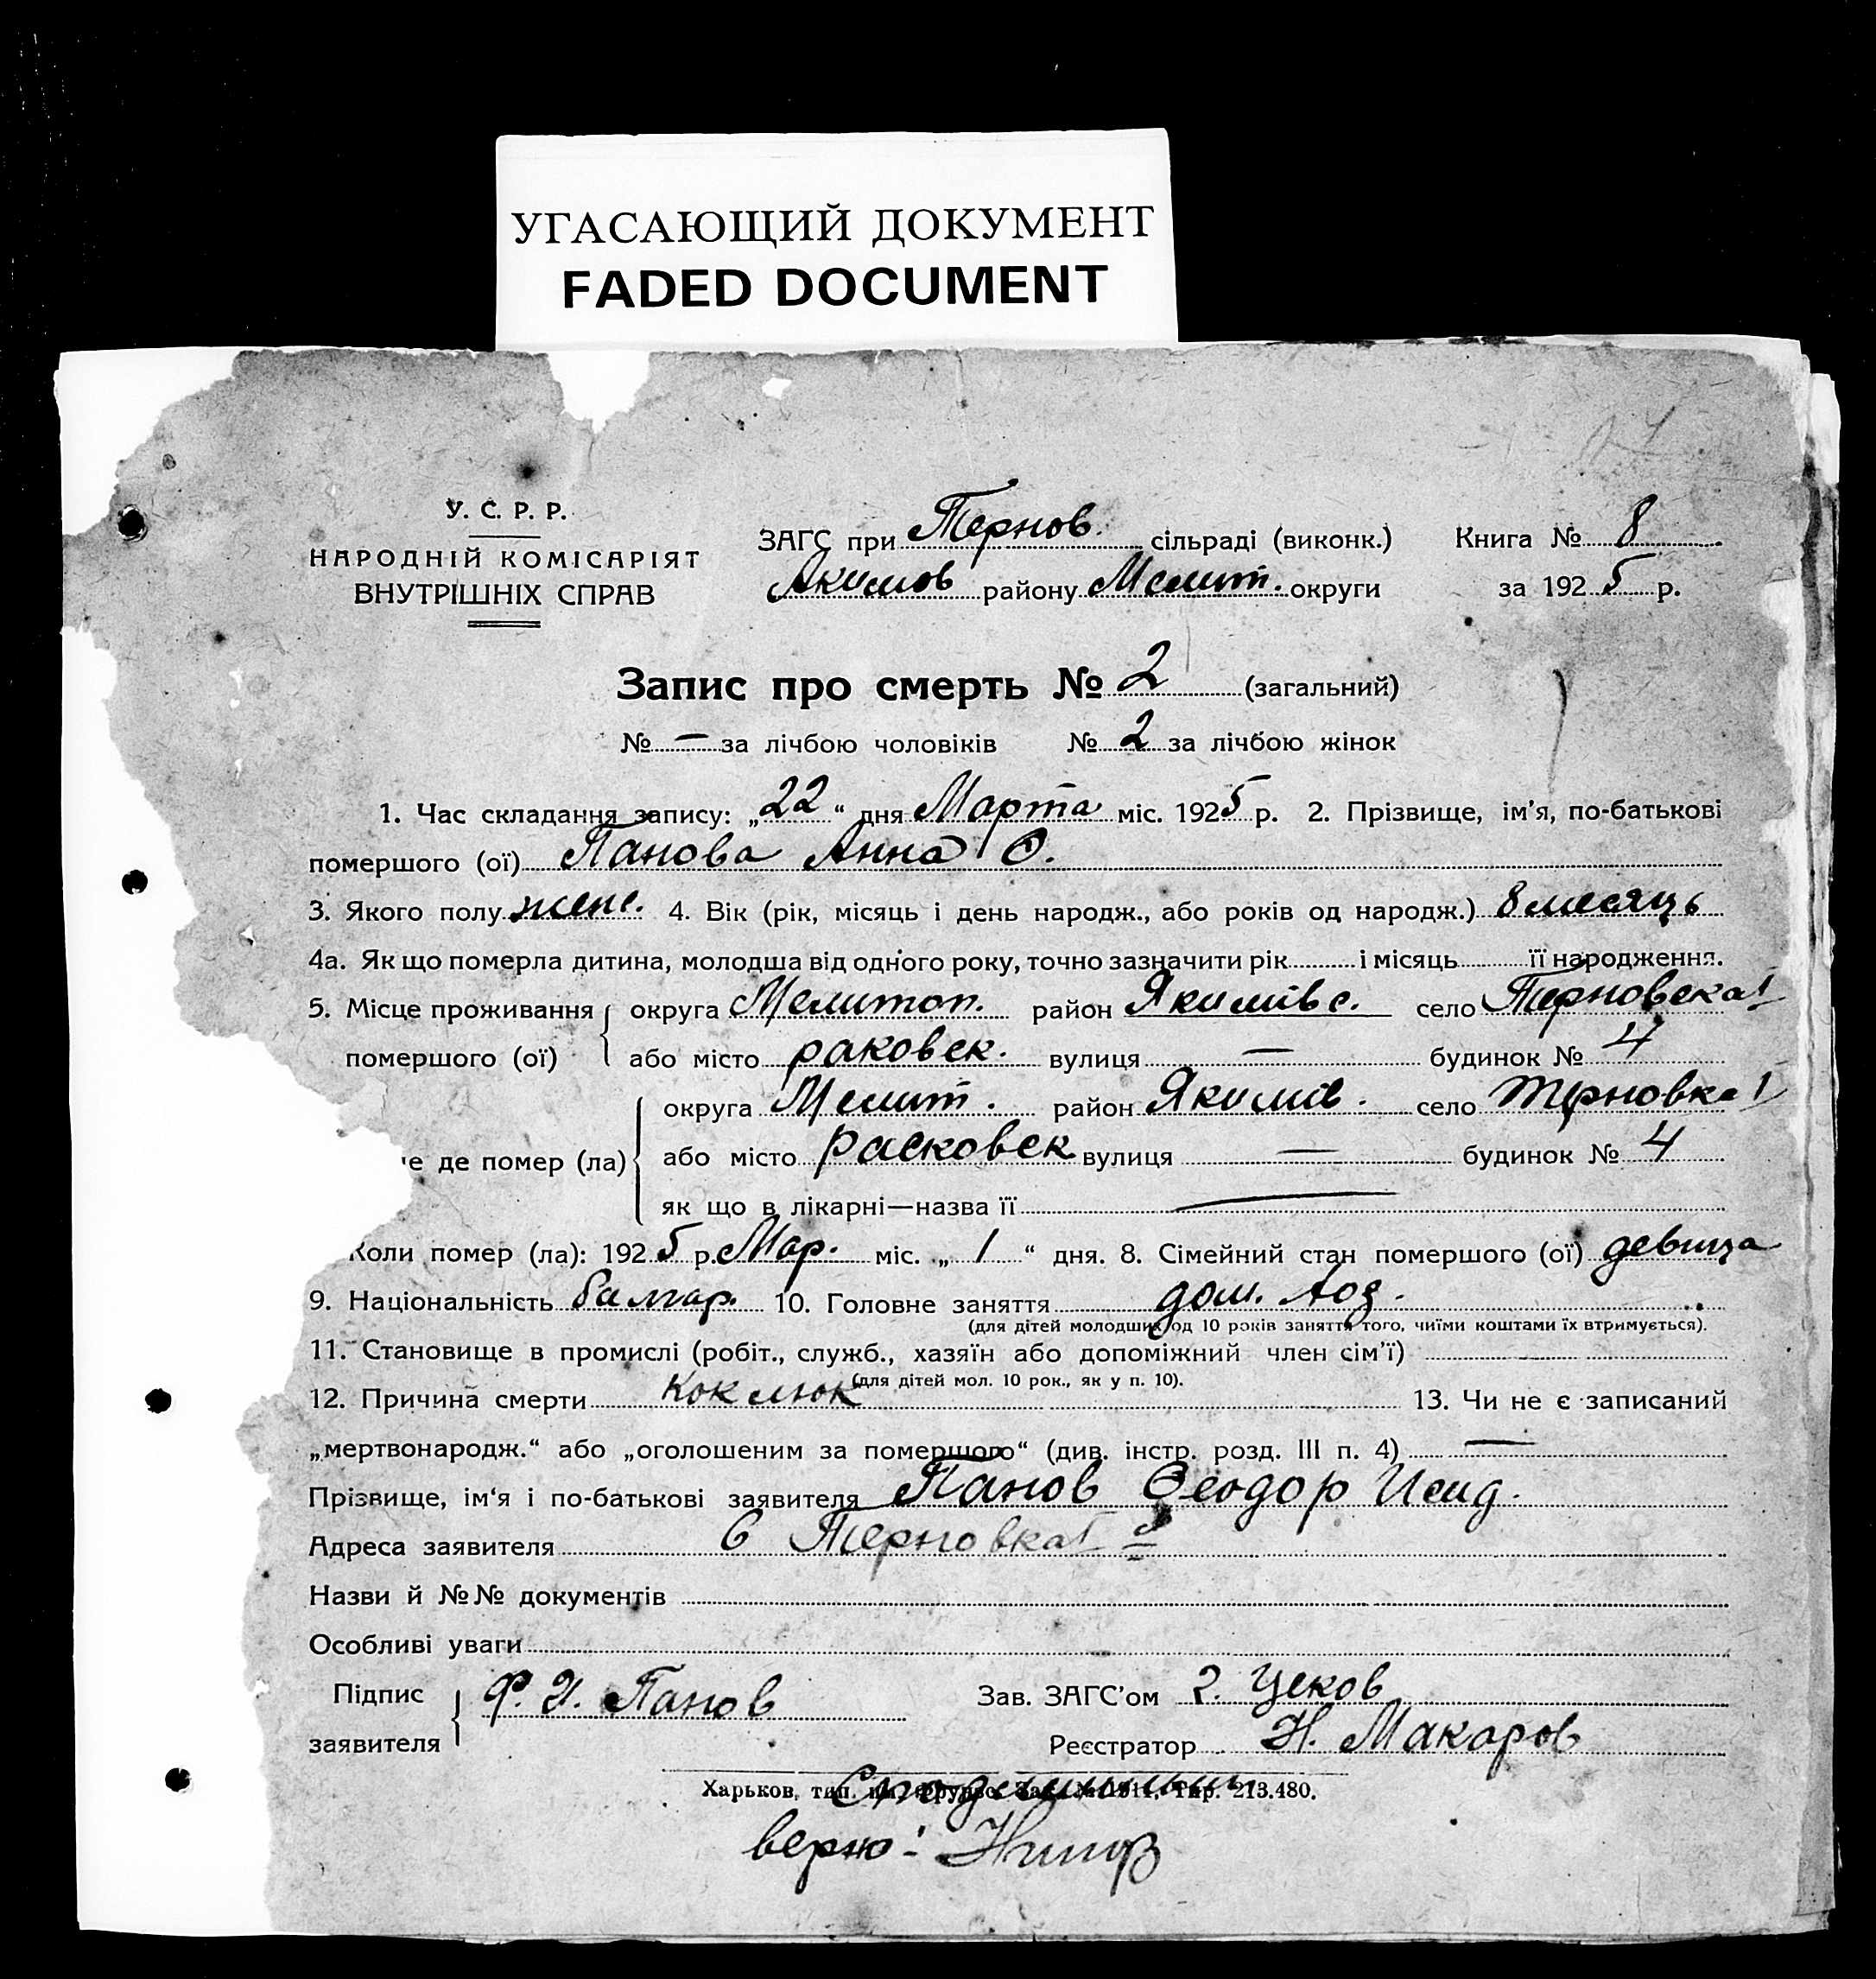 УГАСАЮЩИЙ ДОКУМЕНТ
FADED DOCUMENT
У. С. Р. Р.
НАРОДНІЙ КОМІСАРІЯТ
ВНУТРІШНІХ СПРАВ
ЗАГС при Тернов. сільраді (виконк.)
Якимов району Мелит. округи
Книга № 8
за 1925 р.
Запис про смерть № 2 (загальний)
№ — за лічбою чоловіків № 2 за лічбою жінок
1. Час складання запису: „22“ дня Марта міс. 1925 р. 2. Прізвище, ім'я, по-батькові
помершого (ої) Панова Анна Ѳ.
3. Якого полу женс. 4. Вік (рік, місяць і день народж., або років од народж.) 8 месяць
4а. Як що померла дитина, молодша від одного року, точно зазначити рік і місяць її народження.
5. Місце проживання округа Мелитоп. район Якимівс. село Терновска I
помершого (ої) або місто раковск. вулиця — будинок № 4
округа Мелит. район Якимів. село Терновка I
це де помер (ла) або місто расковск вулиця — будинок № 4
як що в лікарні—назва її —
Коли помер (ла): 1925 р. Мар. міс. „1“ дня. 8. Сімейний стан помершого (ої) девица
9. Національність Балгар. 10. Головне заняття дом. хоз.
(для дітей молодших од 10 років заняття того, чиїми коштами їх втримується).
11. Становище в промислі (робіт., служб., хазяїн або допоміжний член сім'ї)
(для дітей мол. 10 рок., як у п. 10).
12. Причина смерти Коклюк 13. Чи не є записаний
„мертвонародж.“ або „оголошеним за помершого“ (див. інстр. розд. III п. 4) —
Прізвище, ім'я і по-батькові заявителя Панов Ѳеодор Исид.
Адреса заявителя С Терновка I
Назви й №№ документів
Особливі уваги
Підпис заявителя Ф. И. Панов
Зав. ЗАГС'ом Г. Цеков
Реєстратор Н. Макаров
Харьков, тип. им. Фрунзе. Зак. № 1911. Тир. 213.480.
верно: